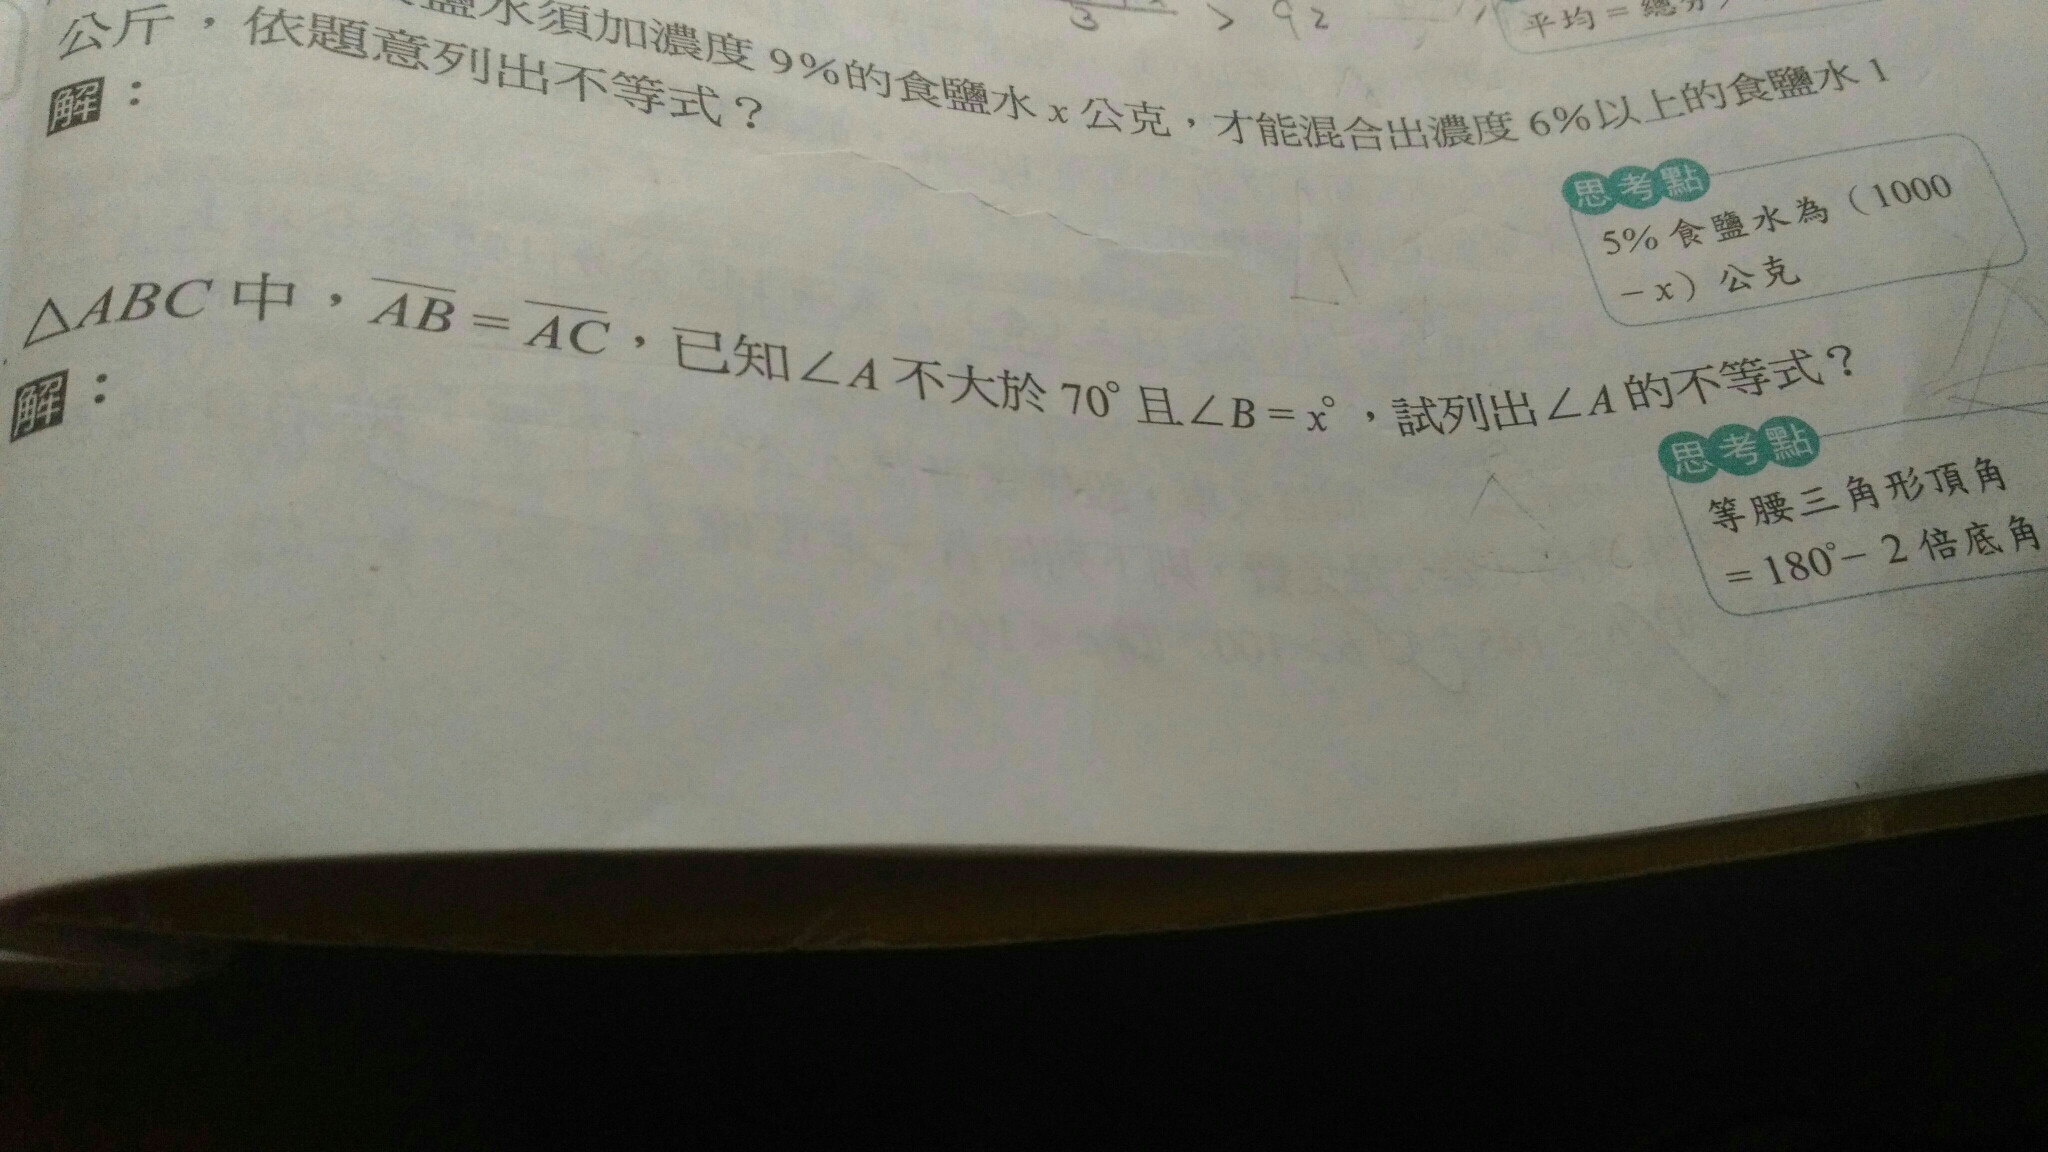 3 > 92
平均=總分
食鹽水須加濃度9%的食鹽水x公克,才能混合出濃度6%以上的食鹽水1
公斤,依題意列出不等式?
解:
思考點
5%食鹽水為(1000
-x)公克
△ABC中,AB=AC,已知∠A不大於70°且∠B=x°,試列出∠A的不等式?
解:
思考點
等腰三角形頂角
=180°-2倍底角